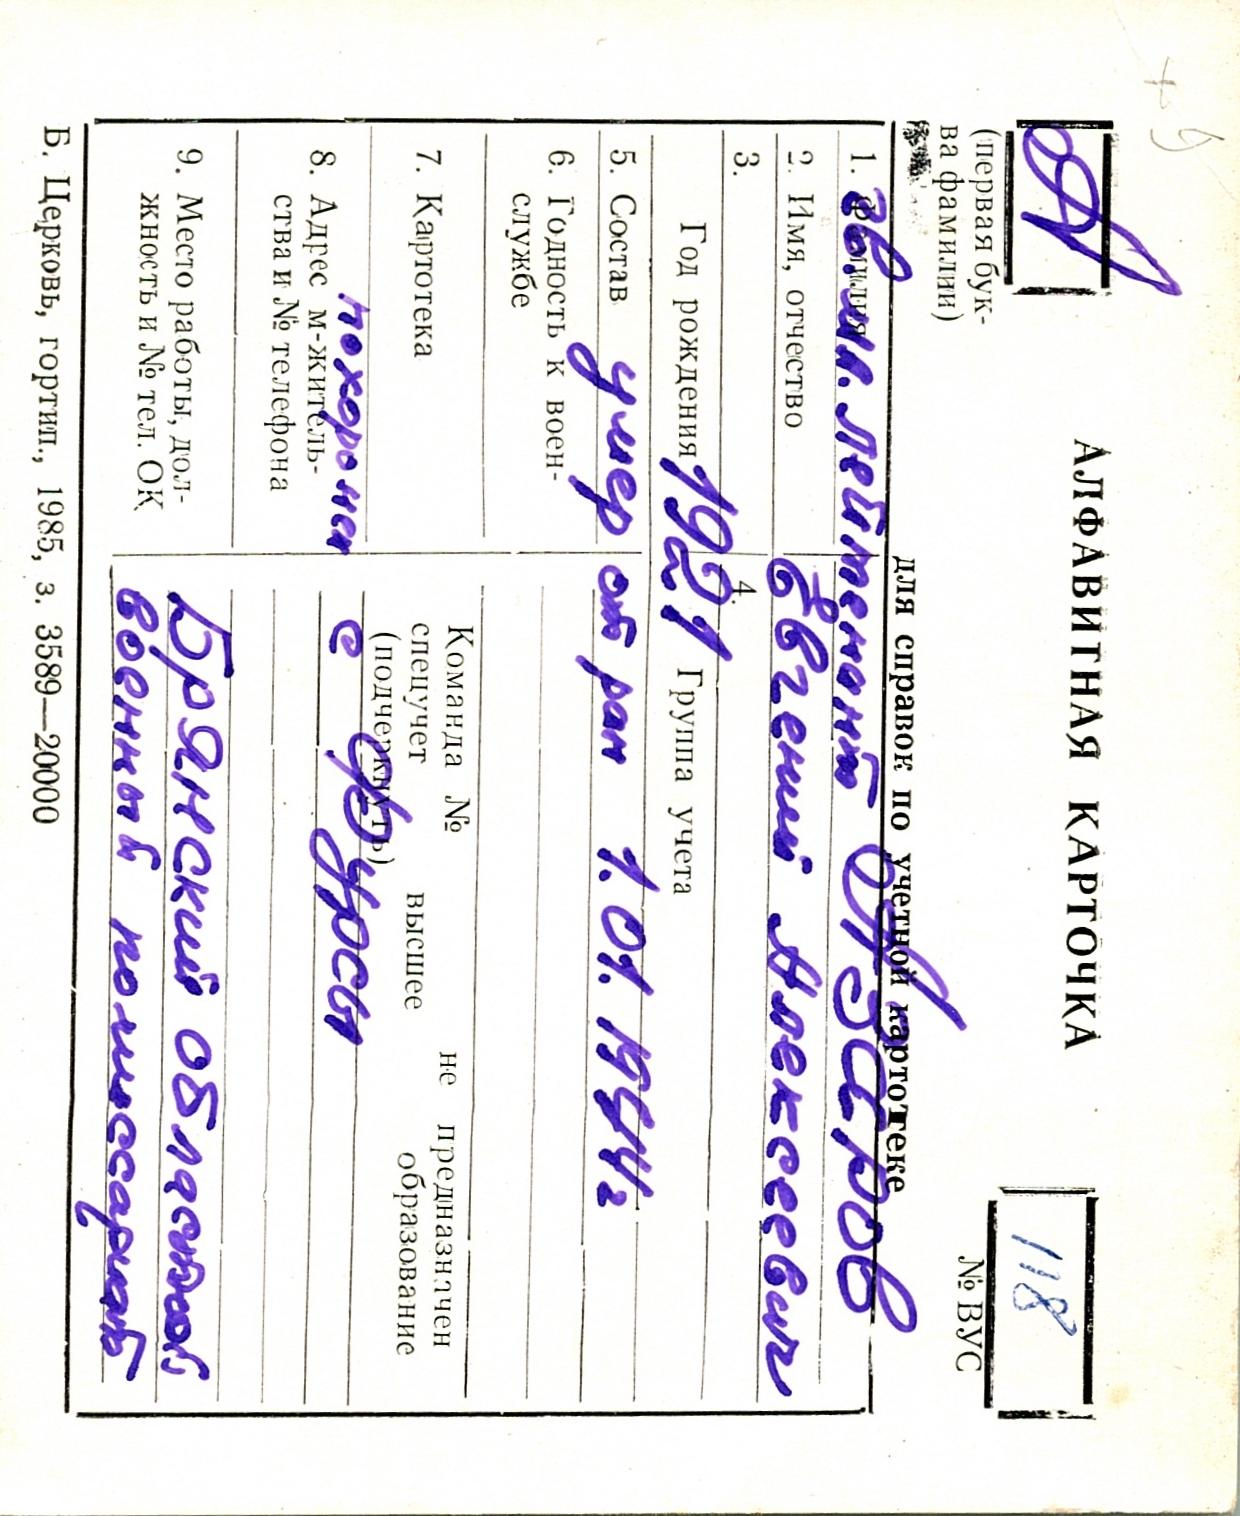 А
(первая бук-
ва фамилии)
АЛФАВИТНАЯ КАРТОЧКА
для справок по учетной картотеке
118
№ ВУС
1. Фамилия
гв. мл. лейтенант Азаров
2. Имя, отчество Евгений Алексеевич
3. Год рождения 1921
4. Группа учета
5. Состав умер от ран 1.01.1944г
6. Годность к воен-
службе
7. Картотека
Команда № не предназначен
спецучет высшее образование
(подчеркнуть)
похоронен с
8. Адрес м-житель-
ства и № телефона
9. Место работы, дол-
жность и № тел. ОК
Брянский областной
военный комиссариат
Б. Церковь, гортип., 1985, з. 3589—20000